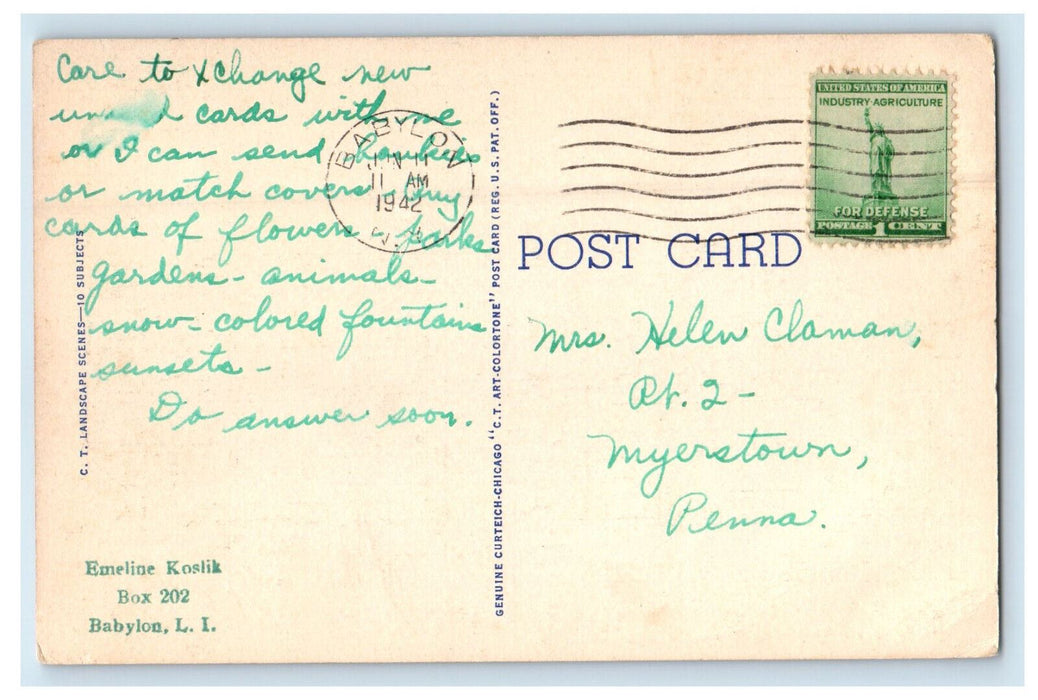 Care to Xchange new
cards with me
or I can send hankies
or match covers, buy
cards of flowers parks
gardens - animals -
snow - colored fountains
sunsets -
Do answer soon.
Emeline Koslik
Box 202
Babylon, L. I.
C. T. LANDSCAPE SCENES—10 SUBJECTS
BABYLON
JUN 11
11 AM
1942
N.Y.
GENUINE CURTEICH-CHICAGO "C. T. ART-COLORTONE" POST CARD (REG. U. S. PAT. OFF.)
UNITED STATES OF AMERICA
INDUSTRY·AGRICULTURE
FOR DEFENSE
POSTAGE 1 CENT
POST CARD
Mrs. Helen Claman,
Rt. 2 -
Myerstown,
Penna.